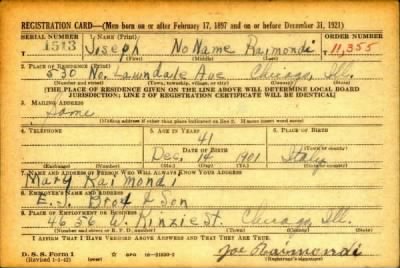 REGISTRATION CARD—(Men born on or after February 17, 1897 and on or before December 31, 1921)
SERIAL NUMBER 1. NAME (Print) ORDER NUMBER
1513 Joseph No Name Raimondi 11,355
2. PLACE OF RESIDENCE (Print)
530 No. Lawndale Ave Chicago, Ill.
(Number and street) (Town, township, village, or city) (County) (State)
[THE PLACE OF RESIDENCE GIVEN ON THE LINE ABOVE WILL DETERMINE LOCAL BOARD
JURISDICTION; LINE 2 OF REGISTRATION CERTIFICATE WILL BE IDENTICAL]
3. MAILING ADDRESS
Same
[Mailing address if other than place indicated on line 2. If same insert word same]
4. TELEPHONE 5. AGE IN YEARS 6. PLACE OF BIRTH
41
DATE OF BIRTH (Town or county)
Dec. 14 1901 Italy
(Exchange) (Number) (Mo.) (Day) (Yr.) (State or country)
7. NAME AND ADDRESS OF PERSON WHO WILL ALWAYS KNOW YOUR ADDRESS
Mary Raimondi
8. EMPLOYER'S NAME AND ADDRESS
E.J. & Son
9. PLACE OF EMPLOYMENT OR BUSINESS
4656 W. Kinzie St. Chicago, Ill.
(Number and street or R. F. D. number) (Town) (County) (State)
I AFFIRM THAT I HAVE VERIFIED ABOVE ANSWERS AND THAT THEY ARE TRUE.
D. S. S. Form 1
(Revised 1-1-42) (over) GPO Joe Raimondi
(Registrant's signature)